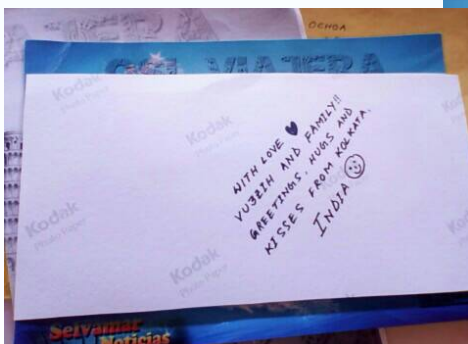 OCHOA
Kodak
Kodak
Photo Paper
Kodak
Photo Paper
Kodak
Photo Paper
WITH LOVE ♥
VU3ZIH AND FAMILY!!
GREETINGS, HUGS AND
KISSES FROM KOLKATA.
INDIA ☺
Selvamar
Noticias